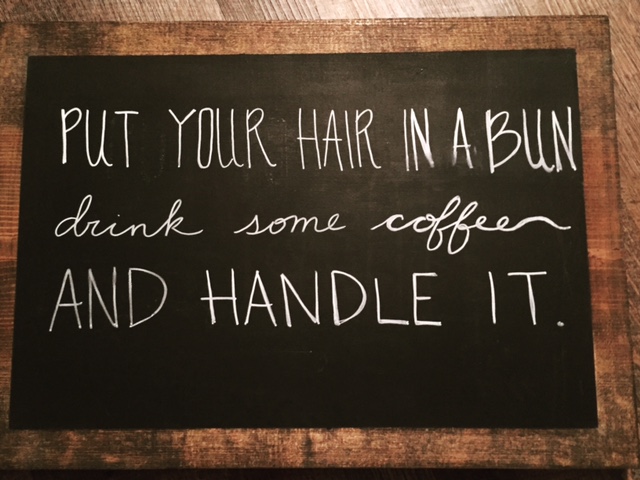 PUT YOUR HAIR IN A BUN
drink some coffee
AND HANDLE IT.